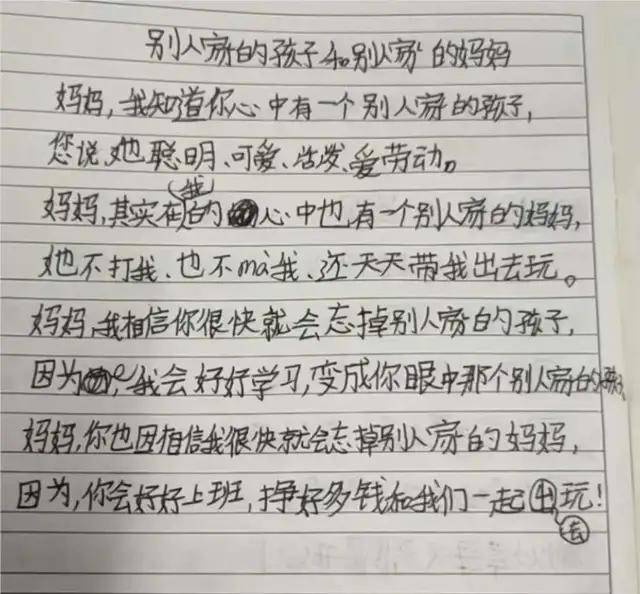 别人家的孩子和别人家的妈妈
妈妈,我知道你心中有一个别人家的孩子,
您说,她聪明、可爱、活发、爱劳动。
妈妈,其实在我的心中也有一个别人家的妈妈,
她不打我、也不mà我、还天天带我出去玩。
妈妈,我相信你很快就会忘掉别人家的孩子,
因为,我会好好学习,变成你眼中那个别人家的孩子。
妈妈,你也因相信我很快就会忘掉别人家的妈妈,
因为,你会好好上班,挣好多钱和我们一起出去玩!